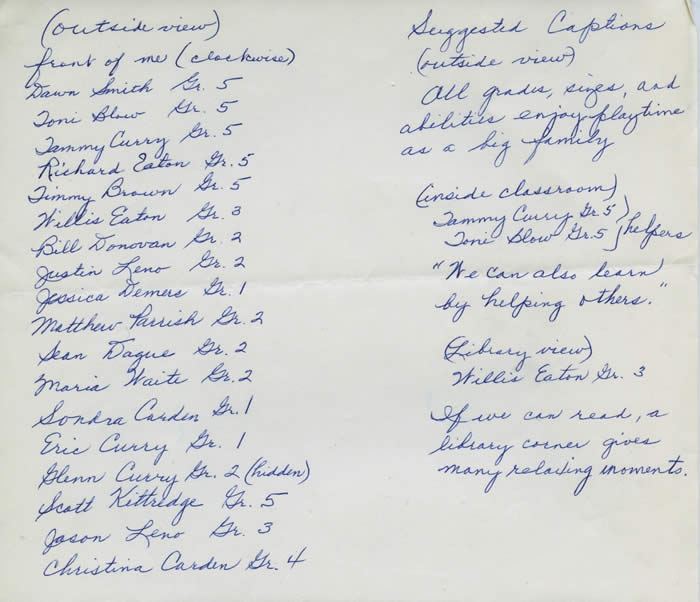 (outside view)
front of me (clockwise)
Dawn Smith Gr. 5
Toni Blow Gr. 5
Tammy Curry Gr. 5
Richard Eaton Gr. 5
Timmy Brown Gr. 5
Willis Eaton Gr. 3
Bill Donovan Gr. 2
Justin Leno Gr. 2
Jessica Demers Gr. 1
Matthew Parrish Gr. 2
Sean Dague Gr. 2
Maria Waite Gr. 2
Sondra Carden Gr. 1
Eric Curry Gr. 1
Glenn Curry Gr. 2 (hidden)
Scott Kittredge Gr. 5
Jason Leno Gr. 3
Christina Carden Gr. 4
Suggested Captions
(outside view)
All grades, sizes, and
abilities enjoy playtime
as a big family
(inside classroom)
Tammy Curry Gr. 5)
Toni Blow Gr. 5 } helpers
"We can also learn
by helping others."
(Library view)
Willis Eaton Gr. 3
If we can read, a
library corner gives
many relaxing moments.